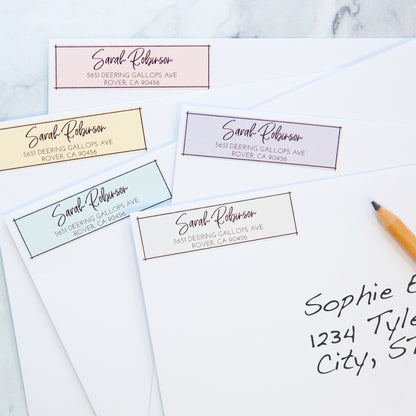 Sarah Robinson
5651 DEERING GALLOPS AVE
ROVER, CA 90456
Sarah Robinson
5651 DEERING GALLOPS AVE
ROVER, CA 90456
Sarah Robinson
5651 DEERING GALLOPS AVE
ROVER, CA 90456
Sarah Robinson
5651 DEERING GALLOPS AVE
ROVER, CA 90456
Sarah Robinson
5651 DEERING GALLOPS AVE
ROVER, CA 90456
Sophie
1234 Tyle
City, ST